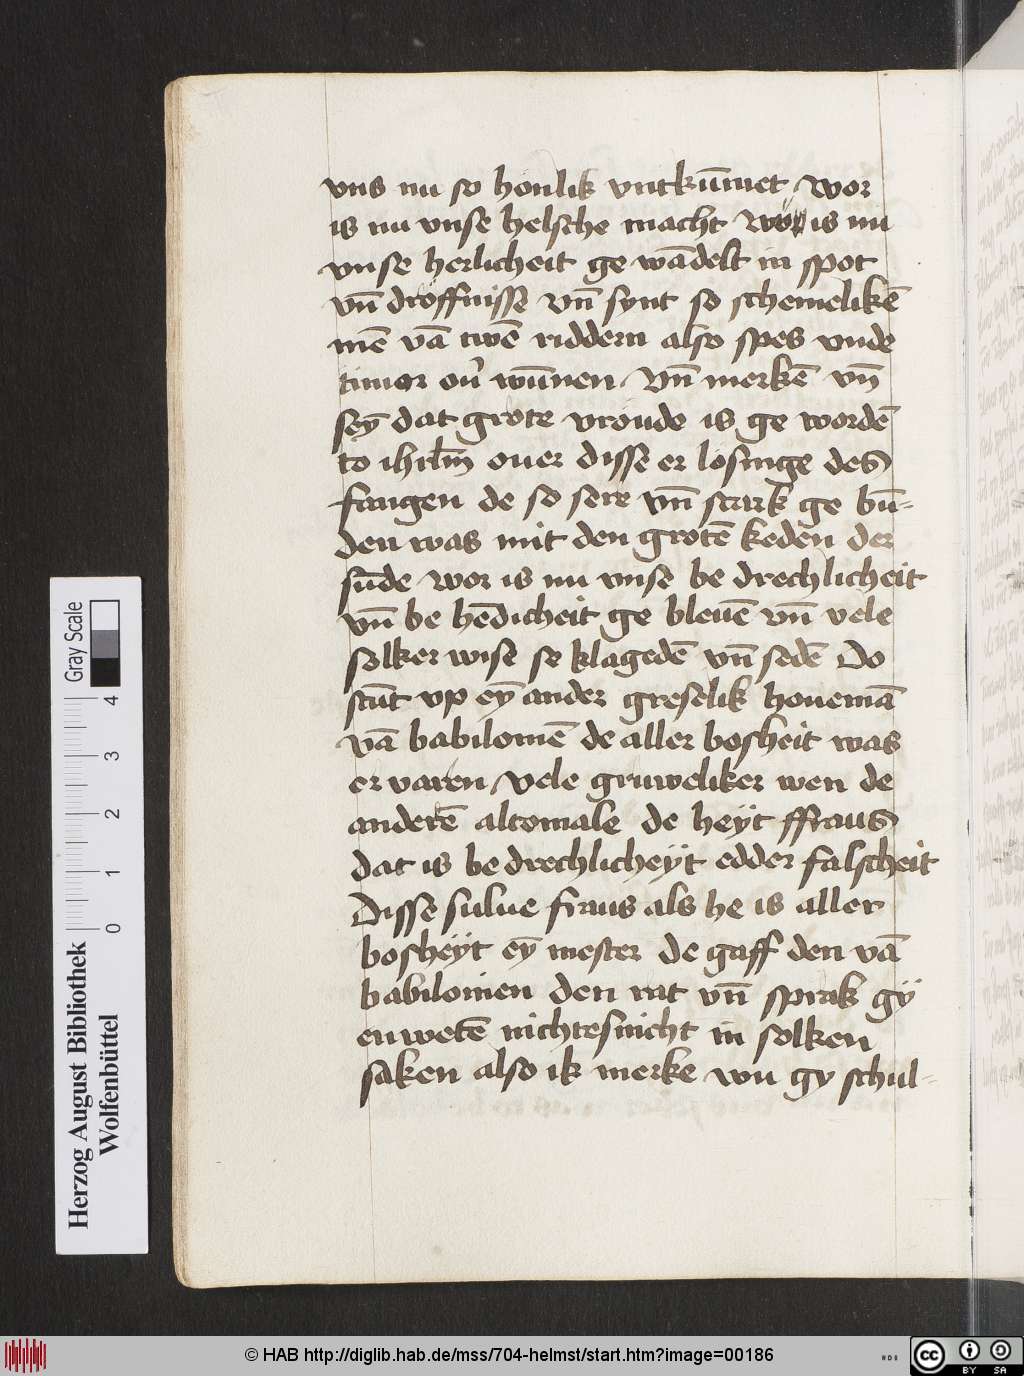 vns nu so honlik vntkūmet / wor
is nu vnse helsche macht wo is nu
vnse herlicheit ge wādelt in spot
vn̄ droffnisse vn̄ synt so schemelikē
mē vā twē riddern also spes vnde
timor ou̓ wūnen / Vn̄ merkē vn̄
sey̅ dat grote vroude is ge wordē
to ihrlm̄ ouer disse er losinge des
fangen de so sere vn̄ stark ge bū-
den was mit den grotē keden der
sūde / wor is nu vnse be drechlicheit
vn̄ be hēdicheit ge bleuē vn̄ vele
solker wise se klagedē vn̄ sedē Do
stūt vp ey̅ ander greselik houemā
vā babilomē de aller bosheit was
er varen / vele gruweliker wen de
anderē altomale de heÿt ffraus
dat is be drechlicheÿt edder falscheit
Disse sulue fraus als he is aller
bosheÿt ey̅ mester de gaff den vā
babilonien den rat vn̄ sprak gÿ
en wetē nichtesnicht in solken
saken also ik merke wu gy schul-
Herzog August Bibliothek
Wolfenbüttel
Gray Scale
0 1 2 3 4
© HAB http://diglib.hab.de/mss/704-helmst/start.htm?image=00186
cc BY SA